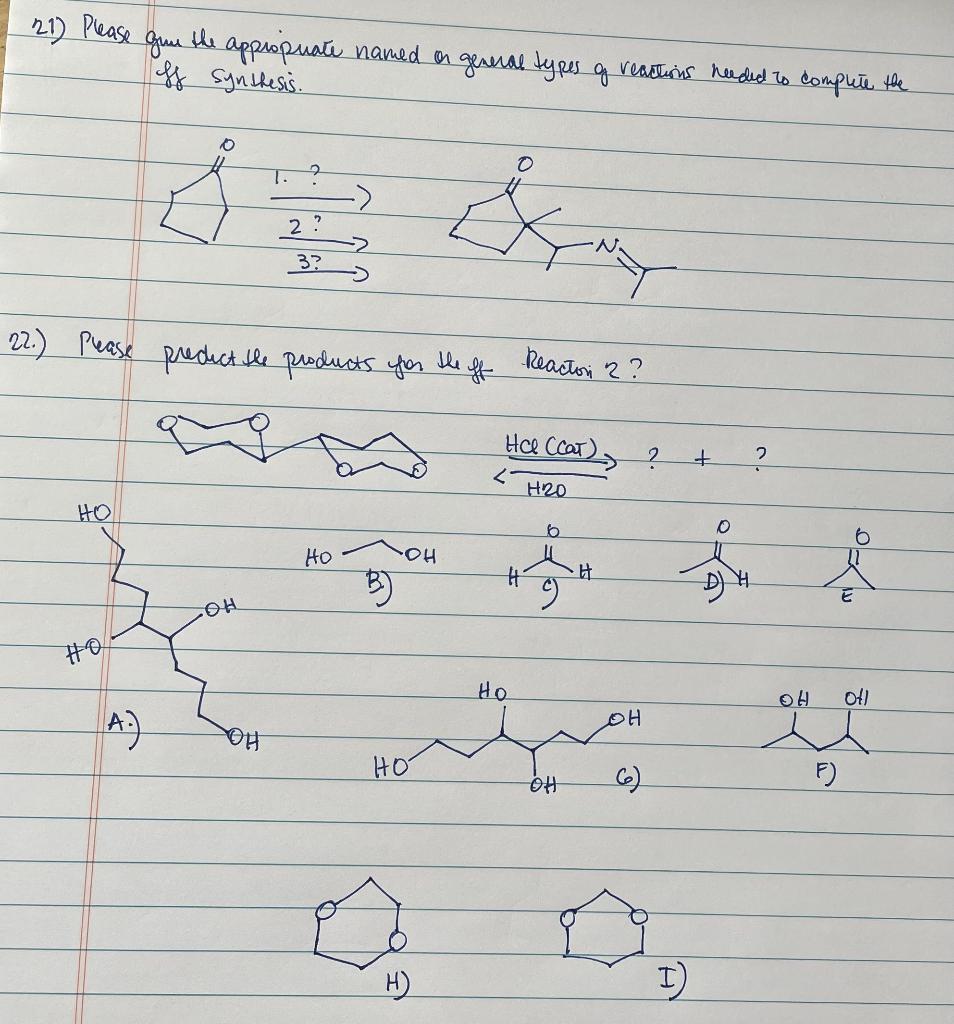 21) Please give the appropriate named or general types of reactions needed to complete the
ff synthesis.
O
1. ?
2 ?
3?
O
N
22.) Please predict the products for the ff Reaction 2?
O O
O O
HCl (CAT)
H2O
? + ?
HO
OH
HO
OH
A.)
HO OH
B.)
O
H H
C)
O
H
D)
O
E
HO
HO
OH
OH
G)
OH OH
F)
O
O
H)
O O
I)